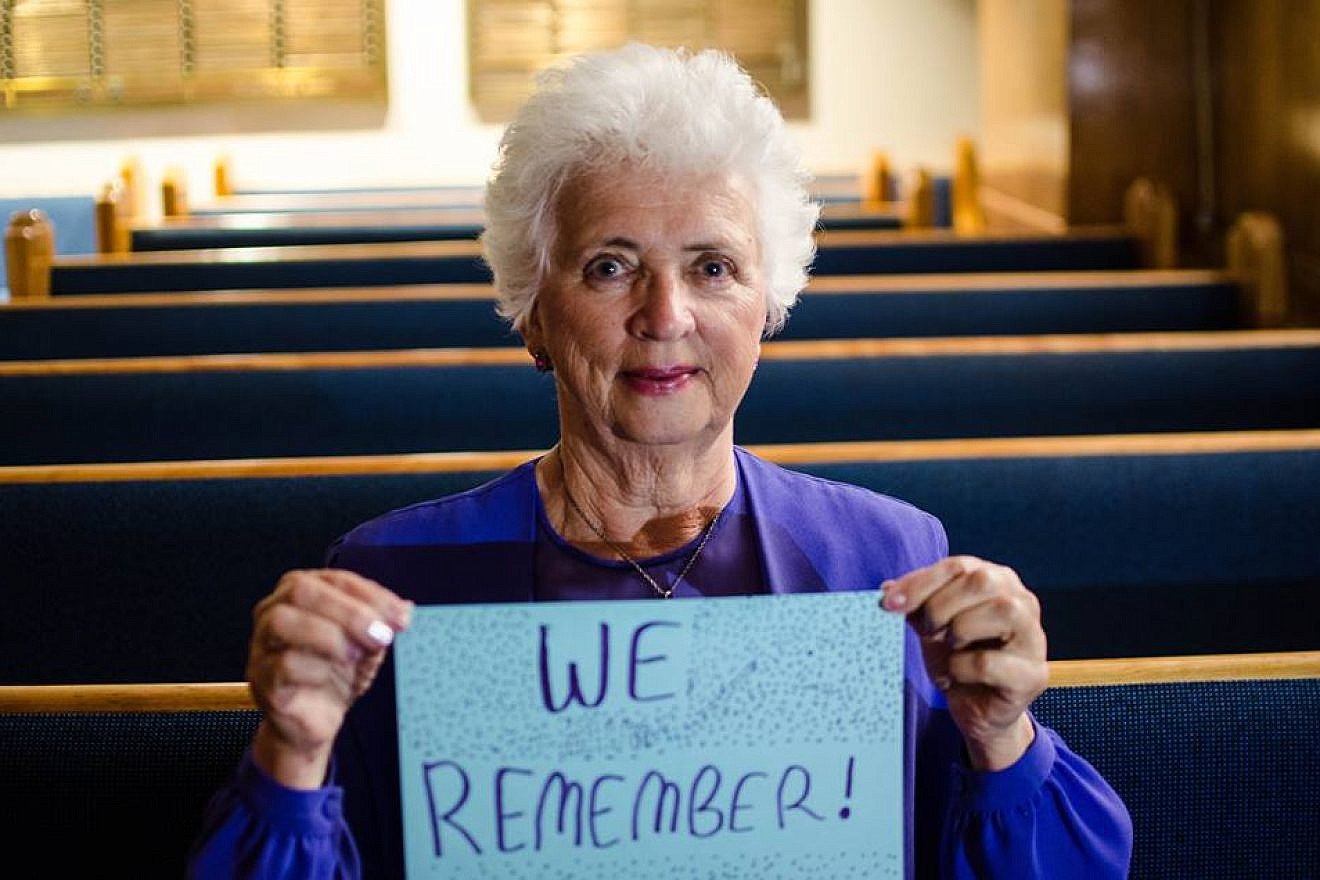 WE
REMEMBER!